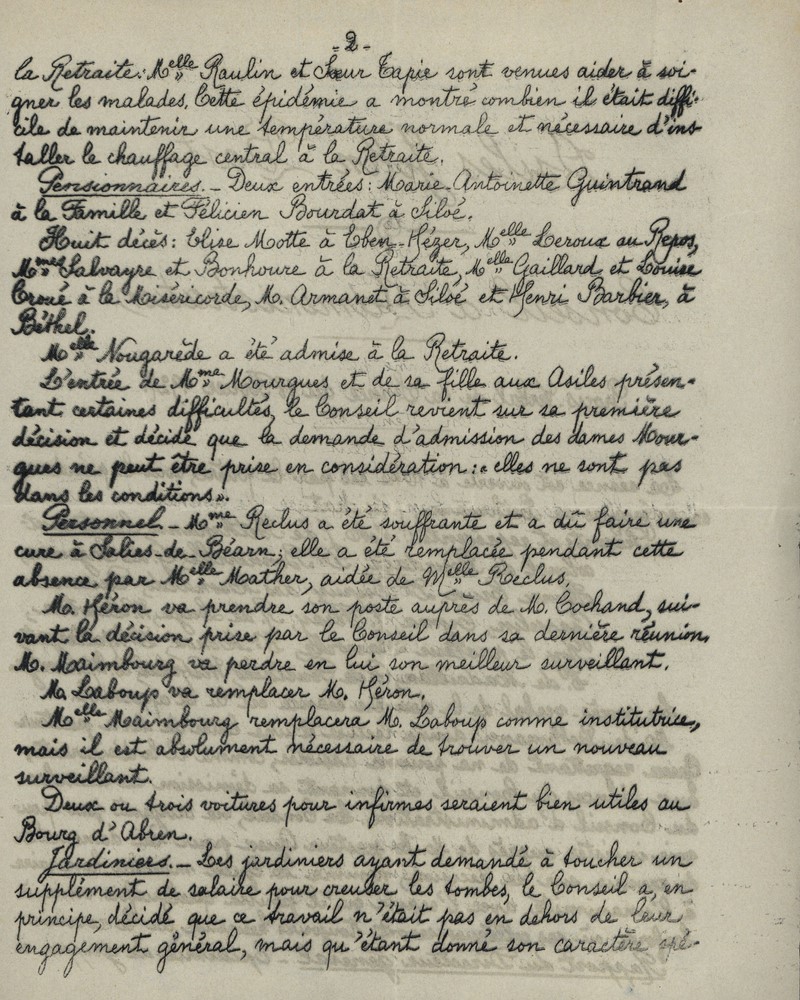 -2-
la Retraite: Melle Raulin et Sœur Tapie sont venues aider à soi-
gner les malades. Cette épidémie a montré combien il était diffi-
cile de maintenir une température normale et nécessaire d'ins-
taller le chauffage central à la Retraite.
Pensionnaires. - Deux entrées: Marie-Antoinette Guintrand
à la Famille et Félicien Bourdat à Siloé.
Huit décès: Elise Motte à Eben-Hézer, Melle Leroux au Repos,
Mmes Salvayre et Bonhoure à la Retraite, Melle Gaillard et Louise
Croué à la Miséricorde, M. Armanet à Siloé et Henri Barbier, à
Béthel.
Melle Nougarède a été admise à la Retraite.
L'entrée de Mme Mourgues et de sa fille aux Asiles présen-
tant certaines difficultés, le Conseil revient sur sa première
décision et décide que la demande d'admission des dames Mour-
gues ne peut être prise en considération: "elles ne sont pas
dans les conditions".
Personnel. - Mme Reclus a été souffrante et a dû faire une
cure à Salies-de-Béarn; elle a été remplacée pendant cette
absence par Melle Mather, aidée de Melle Reclus.
M. Héron va prendre son poste auprès de M. Cochand, sui-
vant la décision prise par le Conseil dans sa dernière réunion.
M. Maimbourg va perdre en lui son meilleur surveillant.
M. Laboup va remplacer M. Héron.
Melle Maimbourg remplacera M. Laboup comme institutrice,
mais il est absolument nécessaire de trouver un nouveau
surveillant.
Deux ou trois voitures pour infirmes seraient bien utiles au
Bourg d'Abren.
Jardiniers. - Les jardiniers ayant demandé à toucher un
supplément de salaire pour creuser les tombes, le Conseil a, en
principe, décidé que ce travail n'était pas en dehors de leur
engagement général, mais qu'étant donné son caractère spé-